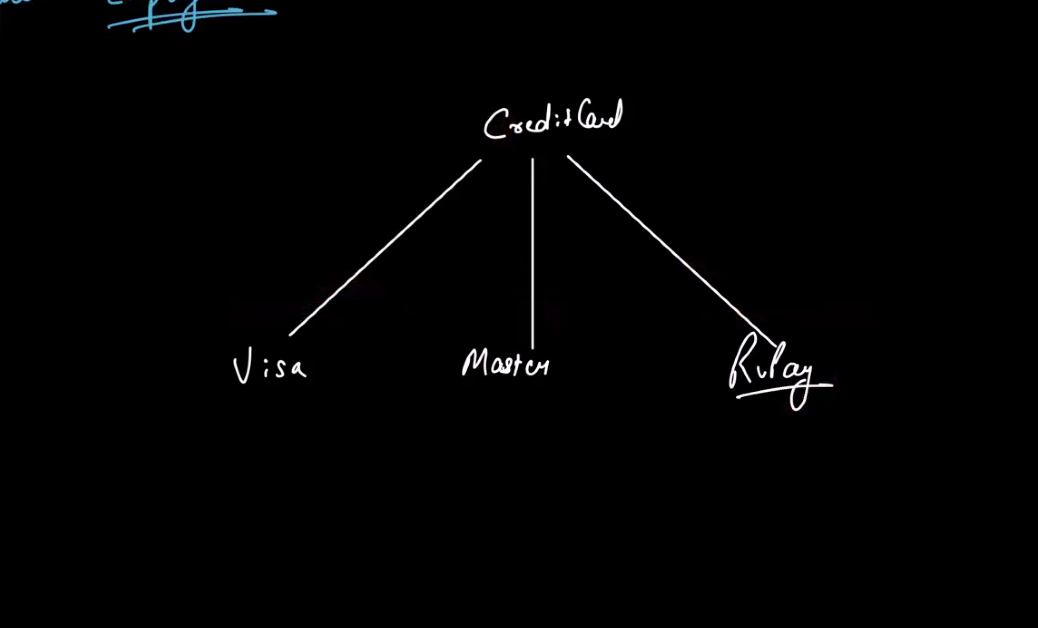 CreditCard
Visa
Master
RuPay